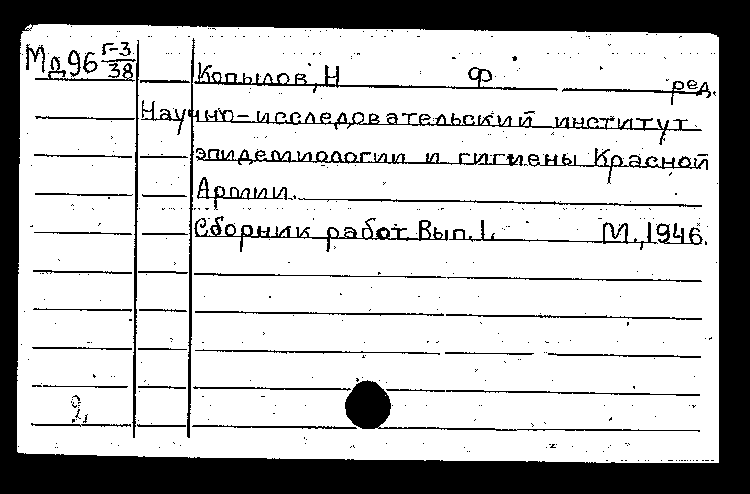 Мд96 Г-3/38
Копылов, Н Ф ред.
Научно-исследовательский институт
эпидемиологии и гигиены Красной
Армии.
Сборник работ. Вып. 1. М., 1946.
2,